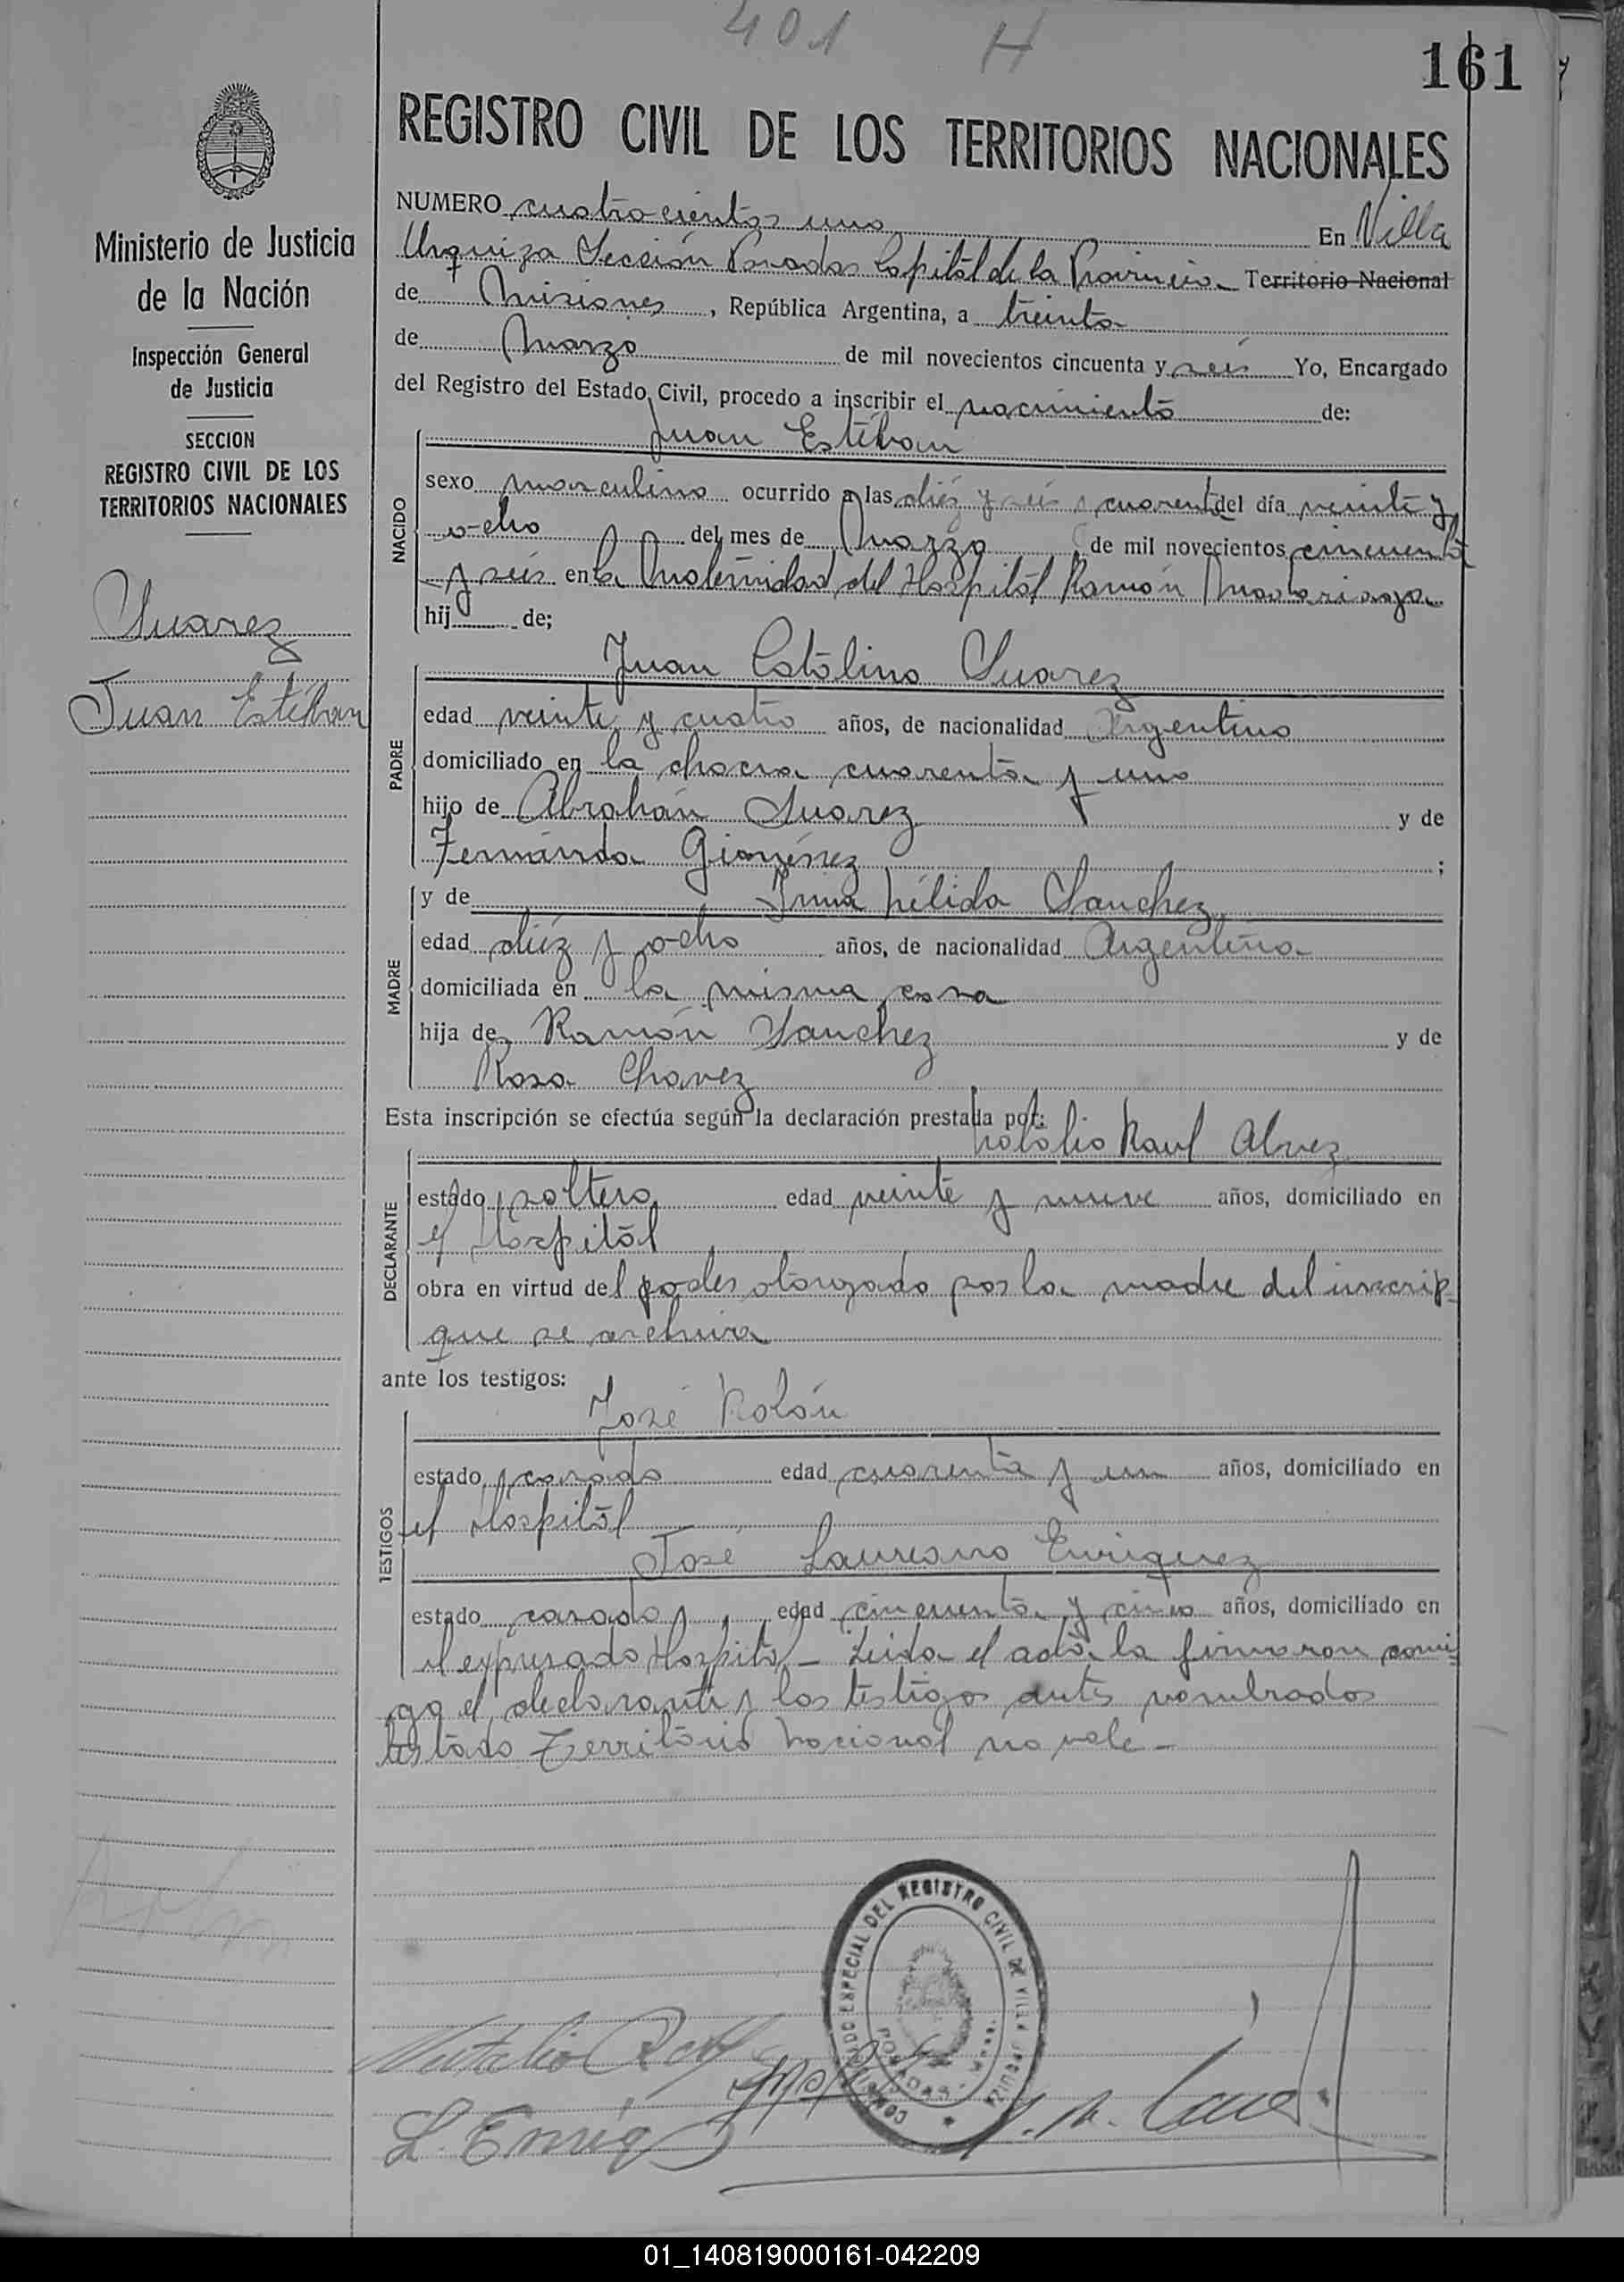 401 H
161
REGISTRO CIVIL DE LOS TERRITORIOS NACIONALES
Ministerio de Justicia
de la Nación
Inspección General
de Justicia
SECCION
REGISTRO CIVIL DE LOS
TERRITORIOS NACIONALES
Suarez
Juan Estéban
NUMERO cuatrocientos uno En Villa
Urquiza Sección Posadas Capital de la Provincia Territorio Nacional
de Misiones, República Argentina, a treinta
de Marzo de mil novecientos cincuenta y seis Yo, Encargado
del Registro del Estado Civil, procedo a inscribir el nacimiento de:
Juan Estéban
NACIDO
sexo masculino ocurrido a las diéz y seis y cuarenta del día veinte y
ocho del mes de Marzo de mil novecientos cincuenta
y seis en la Maternidad del Hospital Ramón Madariaga
hij de;
Juan Catalino Suarez
PADRE
edad veinte y cuatro años, de nacionalidad Argentino
domiciliado en la chacra cuarenta y uno
hijo de Abrahán Suarez y de
Fernanda Giménez ;
y de Irma Nélida Sanchez
MADRE
edad diéz y ocho años, de nacionalidad Argentina
domiciliada en la misma casa
hija de Ramón Sanchez y de
Rosa Chavez
Esta inscripción se efectúa según la declaración prestada por:
Natalio Raul Alvez
DECLARANTE
estado soltero edad veinte y nueve años, domiciliado en
el Hospital
obra en virtud del poder otorgado por la madre del inscrip-
que se archiva
ante los testigos:
José Rolón
TESTIGOS
estado casado edad cuarenta y un años, domiciliado en
el Hospital
José Laureano Enriquez
estado casado y, edad cincuenta y cinco años, domiciliado en
el expresado Hospital - Leida el acta la firmaron conmi=
go el declarante y los testigos antes nombrados
testado Territorio Nacional no vale -
ESPECIAL DEL REGISTRO CIVIL DE VILLA URQUIZA
POSADAS
Natalio R
L. Enriq
01_140819000161-042209